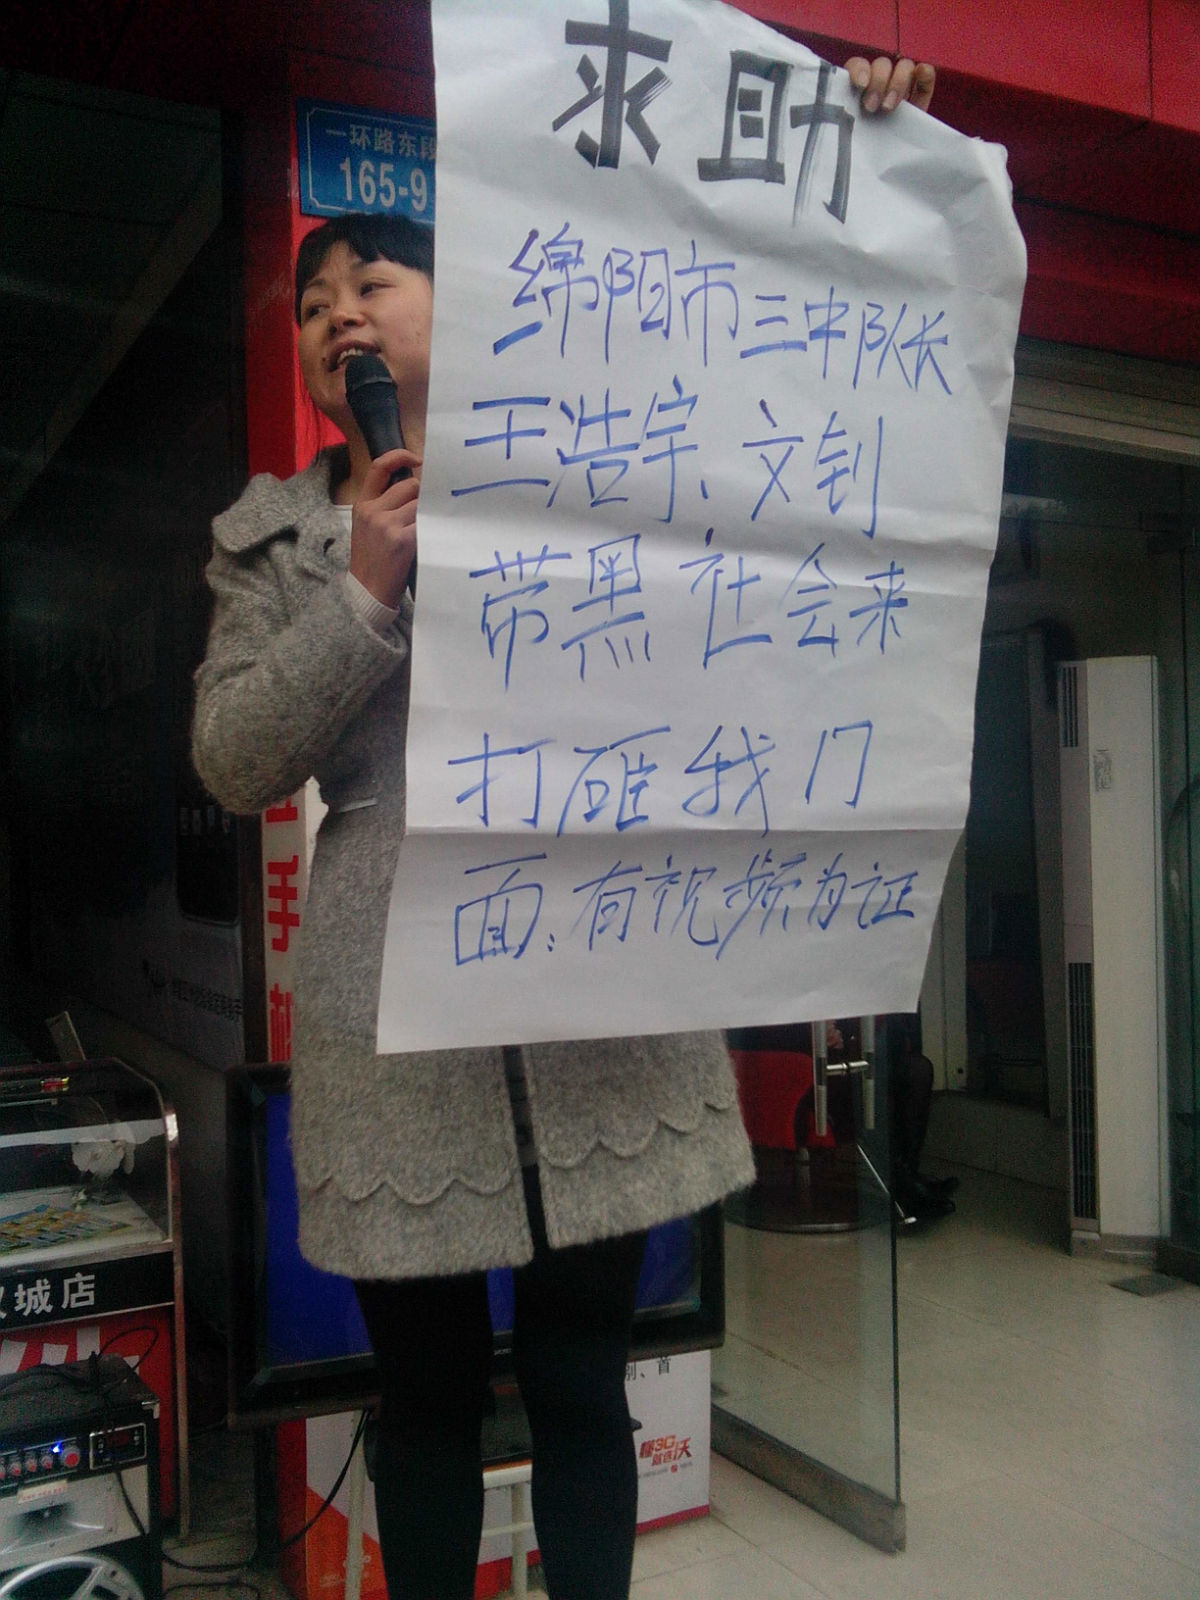 求助
绵阳市三中队长
王浩宇、文钊
带黑社会来
打砸我门
面:有视频为证
一环路东段
165-9
手
城店
别、首
沃